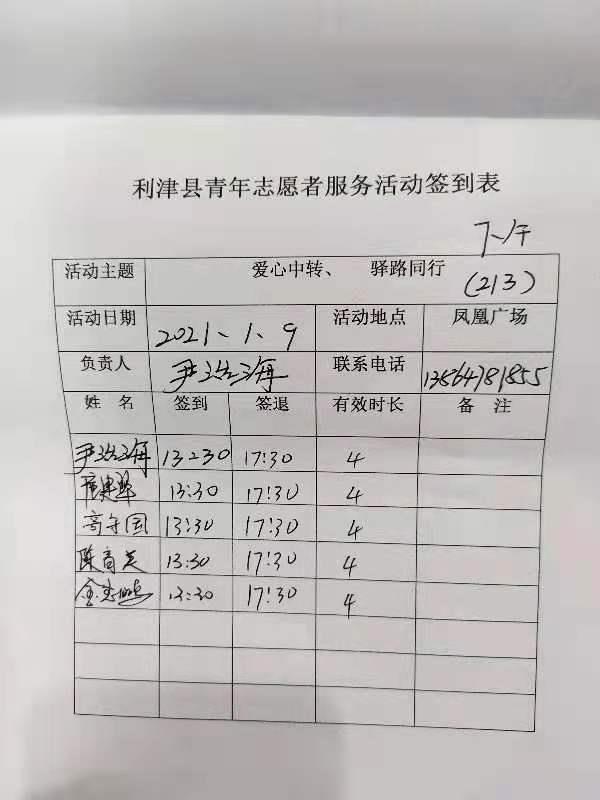 利津县青年志愿者服务活动签到表
下午
活动主题 爱心中转、 驿路同行 (213)
活动日期 2021、1、9 活动地点 凤凰广场
负责人 尹海 联系电话 13864781855
姓 名 签到 签退 有效时长 备 注
尹海 13:30 17:30 4
13:30 17:30 4
高守国 13:30 17:30 4
陈 13:30 17:30 4
13:30 17:30 4